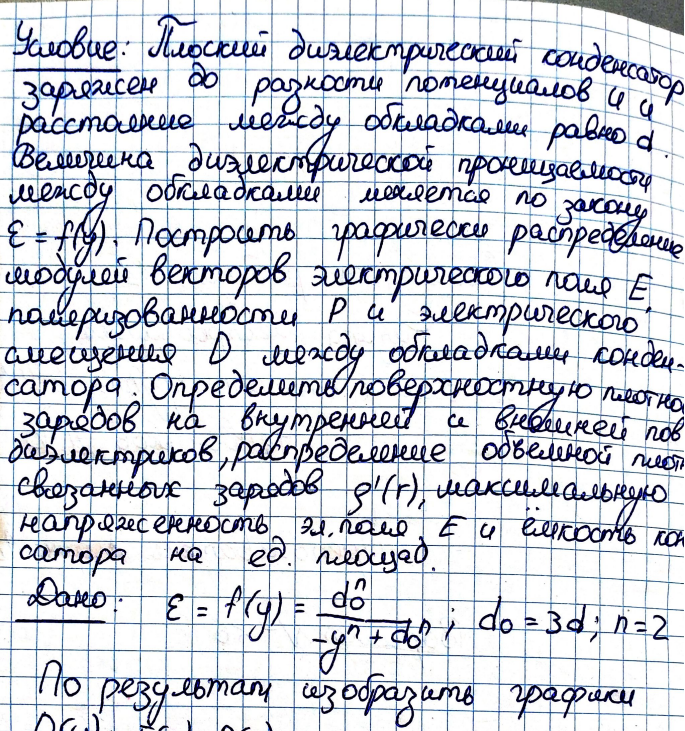 Условие: Плоский диэлектрический конденсатор
заряжен до разности потенциалов U и
расстояние между обкладками равно d.
Величина диэлектрической проницаемости
между обкладками меняется по закону
ε = f(y). Построить графически распределение
модулей векторов электрического поля E,
поляризованности P и электрического
смещения D между обкладками конден-
сатора. Определить поверхностную плотно
зарядов на внутренней и внешней пов
диэлектриков, распределение объемной плотн
связанных зарядов ρ'(r), максимальную
напряженность эл. поля E и ёмкость кон
сатора на ед. площад.
Дано: ε = f(y) = d₀ⁿ / (-yⁿ + d₀ⁿ); d₀ = 3d; n = 2
По результатам изобразить графики